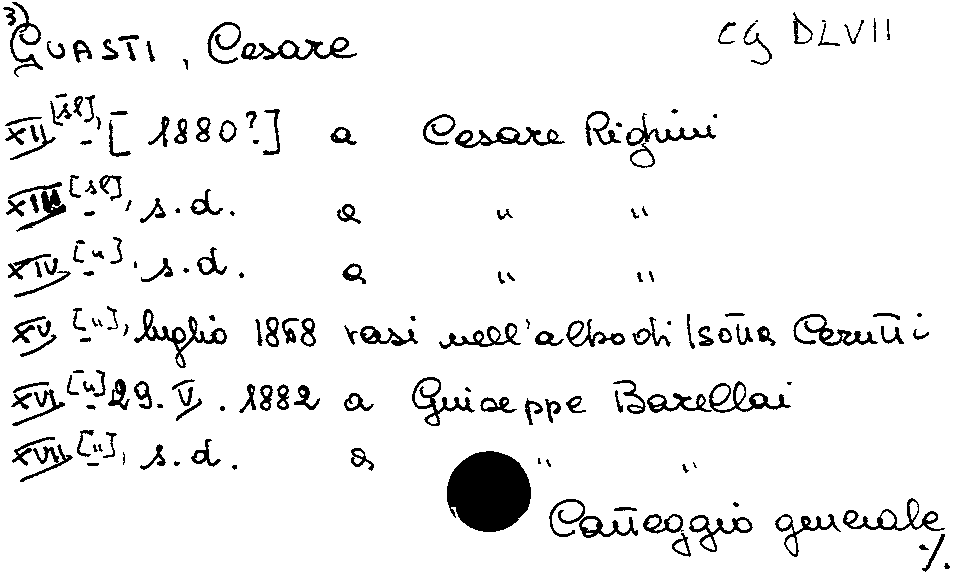 3)
GUASTI, Cesare CG DLVII
XII [sl], - [1880?] a Cesare Righini
XIII [sl], - s.d. a " "
XIV ["] - s.d. a " "
XV ["], luglio 1868 vasi nell'albo di Isotta Cerutti
XVI ["] - 29.V.1882 a Guiseppe Barellai
XVII ["], - s.d. a " "
Carteggio generale
./.